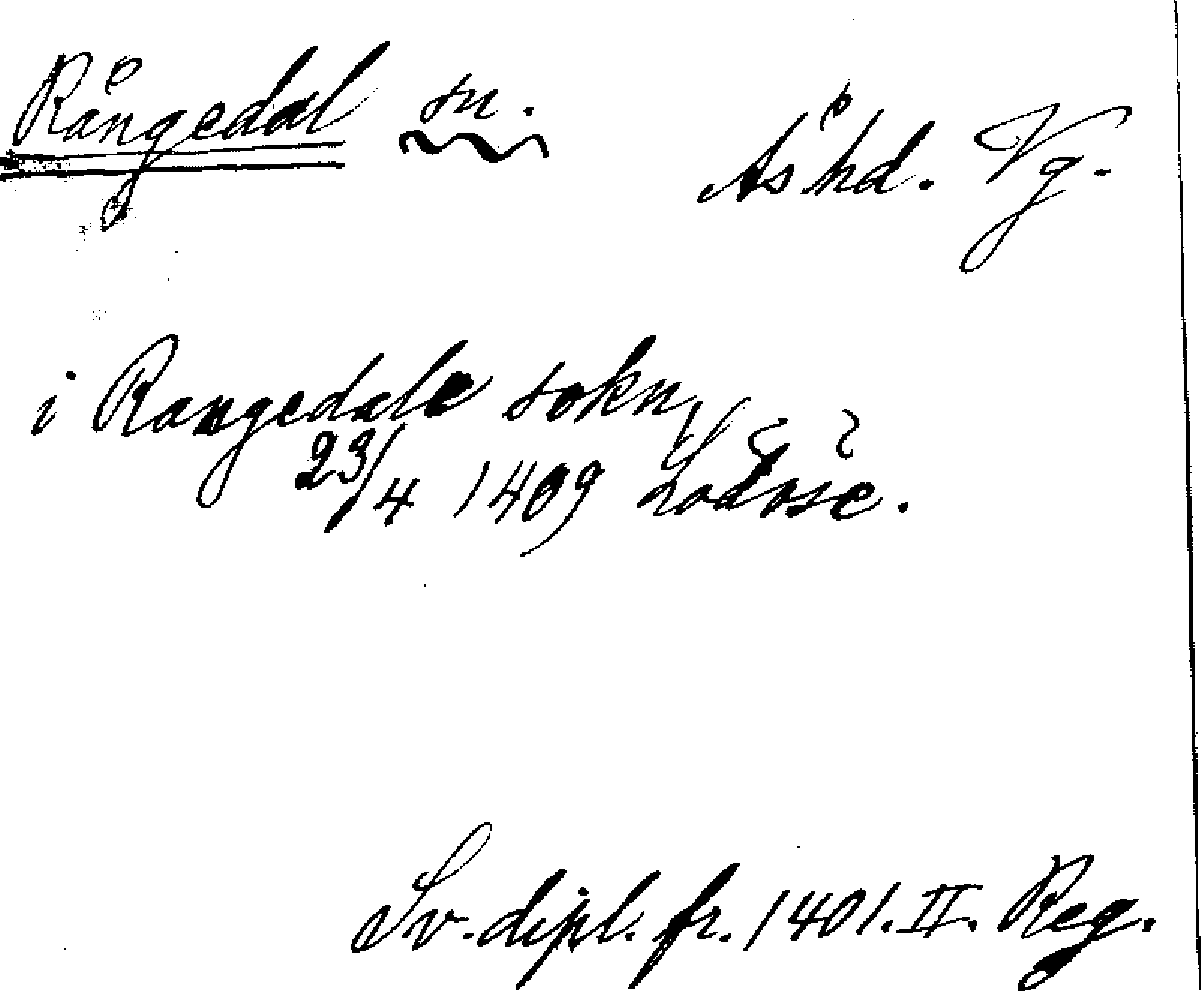 Rångedal sn. Ås hd. Vg.
i Rangedale sokn
23/4 1409 Lodose.
Sv. dipl. fr. 1401. II. Reg.